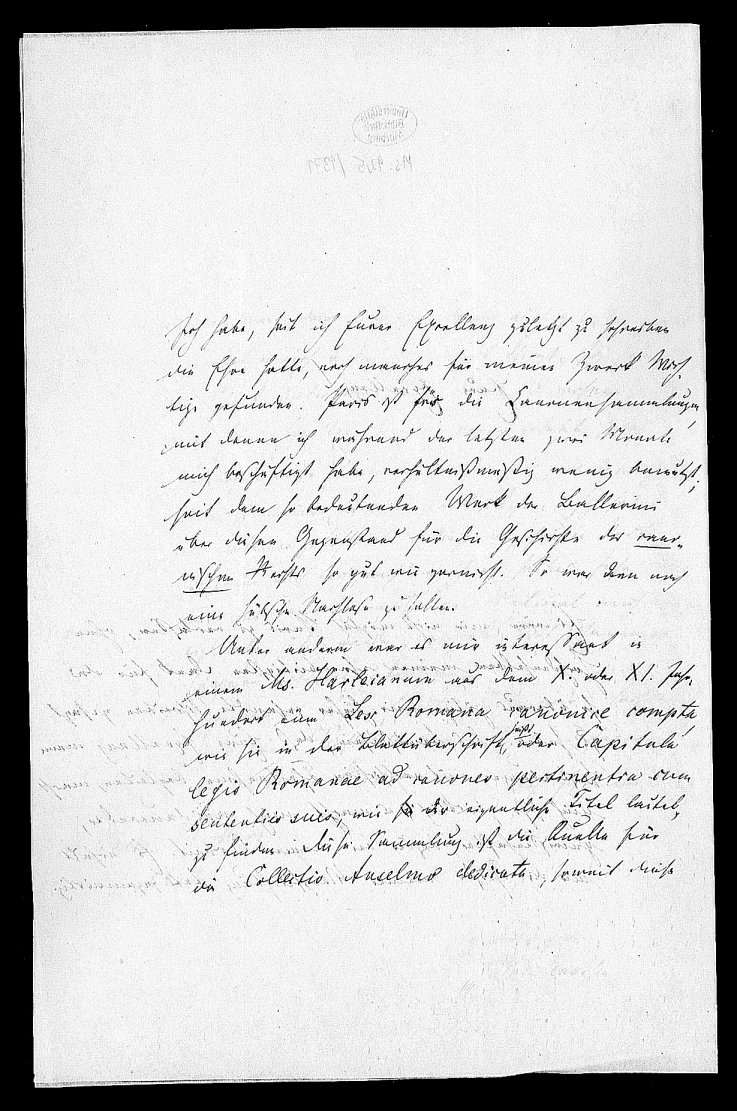 Ich habe, seit ich Eurer Excellenz zuletzt zu schreiben
die Ehre hatte, noch manches für meinen Zweck Wich-
tige gefunden. Paris ist für die Canonensammlungen,
mit denen ich während der letzten zwei Monate
mich beschäftigt habe, verhältnißmäßig wenig benutzt;
seit dem so bedeutenden Werk der Ballerini
über diesen Gegenstand für die Geschichte des cano-
nischen Rechts so gut wie garnicht. So war denn noch
eine hübsche Nachlese zu halten.
Unter anderm war es mir interessant in
einem Ms. Harleianum aus dem X. oder XI. Jahr-
hundert eine Lex Romana canonice compta,
wie sie in der Blattüberschrift heißt, oder Capitula
legis Romanae ad canones pertinentia cum
sententiis suis, wie der eigentliche Titel lautet,
zu finden. Diese Sammlung ist die Quelle für
die Collectio Anselmo dedicata, soweit diese
Universitäts
Bibliothek
Marburg
Ms. 925/1371